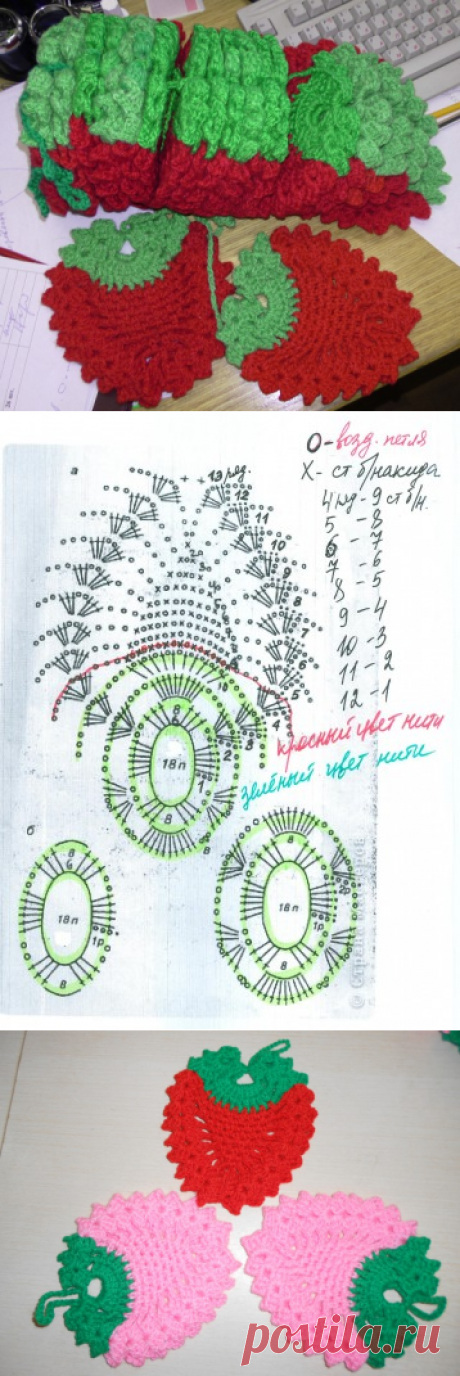 О-возд. петля
X- ст б/накида
4 ряд-9 ст б/н.
5 -8
6 -7
7 -6
8 -5
9 -4
10 -3
11 -2
12 -1
красный цвет нити
зелёный цвет нити
а
13 ряд.
12
11
10
9
8
7
6
5
4
3
2
1
8
6
18п
8
б
8
6
18п
1р
8
18п
1р
8
© Страна Мастеров
postila.ru